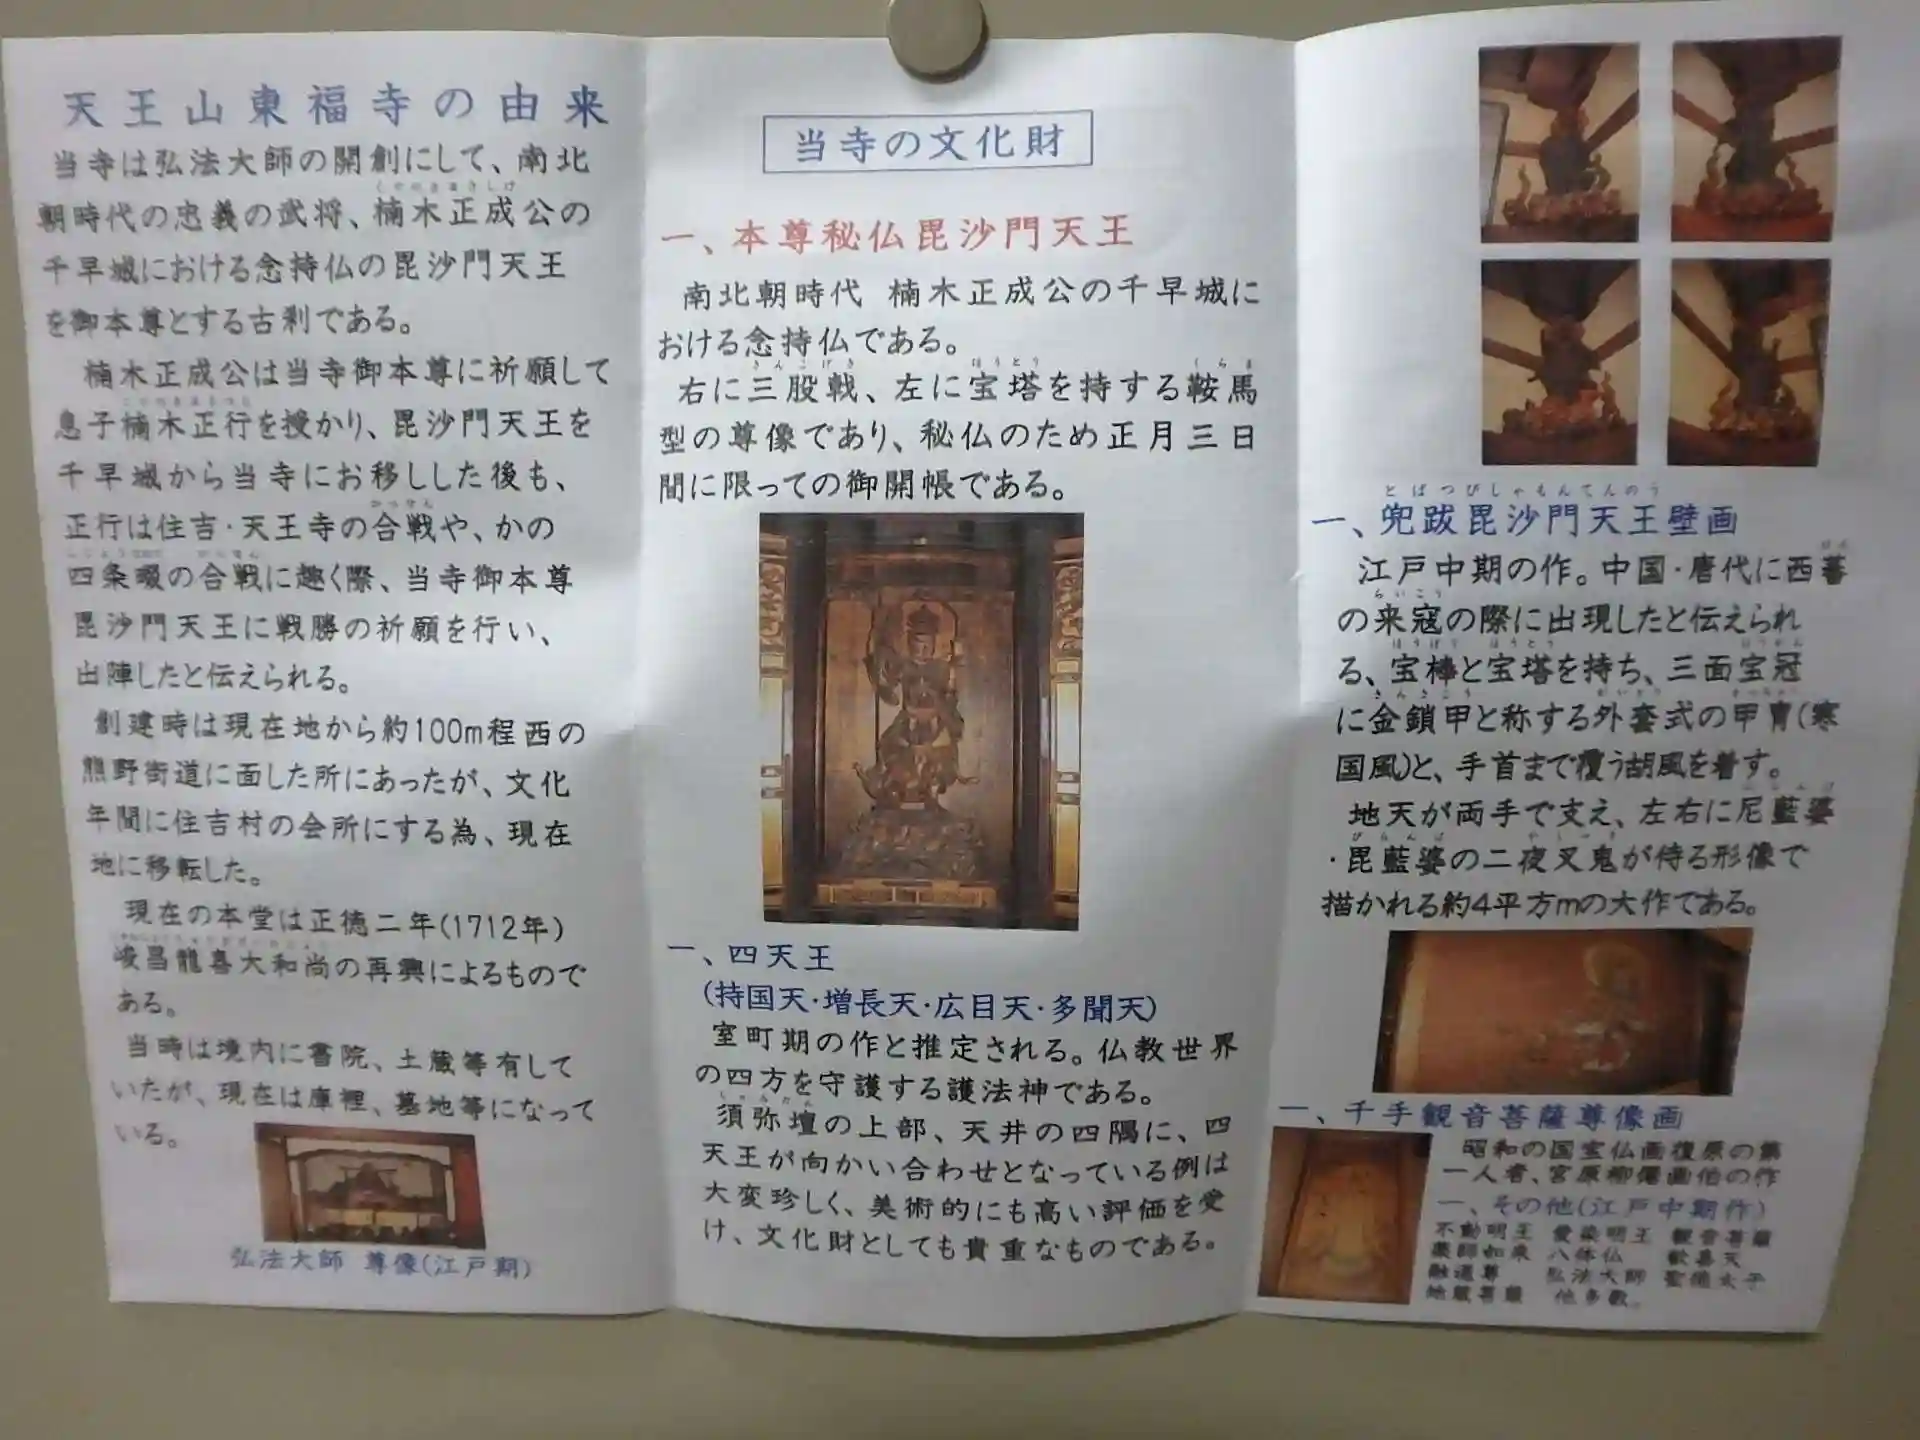 天王山東福寺の由来
当寺は弘法大師の開創にして、南北
朝時代の忠義の武将、楠木正成公の
千早城における念持仏の毘沙門天王
を御本尊とする古刹である。
楠木正成公は当寺御本尊に祈願して
息子楠木正行を授かり、毘沙門天王を
千早城から当寺にお移しした後も、
かっせん
正行は住吉・天王寺の合戦や、かの
四条畷の合戦に趣く際、当寺御本尊
毘沙門天王に戦勝の祈願を行い、
出陣したと伝えられる。
創建時は現在地から約100m程西の
熊野街道に面した所にあったが、文化
年間に住吉村の会所にする為、現在
地に移転した。
現在の本堂は正徳二年(1712年)
峻昌龍喜大和尚の再興によるもので
ある。
当時は境内に書院、土蔵等有して
いたが、現在は庫裡、墓地等になって
いる。
弘法大師 尊像(江戸期)
当寺の文化財
一、本尊秘仏毘沙門天王
南北朝時代 楠木正成公の千早城に
おける念持仏である。
さんこげき ほうとう くらま
右に三股戟、左に宝塔を持する鞍馬
型の尊像であり、秘仏のため正月三日
間に限っての御開帳である。
一、四天王
(持国天・増長天・広目天・多聞天)
室町期の作と推定される。仏教世界
の四方を守護する護法神である。
しゅみだん
須弥壇の上部、天井の四隅に、四
天王が向かい合わせとなっている例は
大変珍しく、美術的にも高い評価を受
け、文化財としても貴重なものである。
とばつびしゃもんてんのう
一、兜跋毘沙門天王壁画
江戸中期の作。中国・唐代に西蕃
らいこう
の来寇の際に出現したと伝えられ
ほうぼう ほうとう ほうかん
る、宝棒と宝塔を持ち、三面宝冠
に金鎖甲と称する外套式の甲冑(寒
国風)と、手首まで覆う胡風を着す。
地天が両手で支え、左右に尼藍婆
びらんば やしゃき
・毘藍婆の二夜叉鬼が侍る形像で
描かれる約4平方mの大作である。
一、千手観音菩薩尊像画
昭和の国宝仏画復原の第
一人者、宮原柳僊画伯の作
一、その他(江戸中期作)
不動明王 愛染明王 観音菩薩
薬師如来 八体仏 歓喜天
融通尊 弘法大師 聖徳太子
地蔵菩薩 他多数。